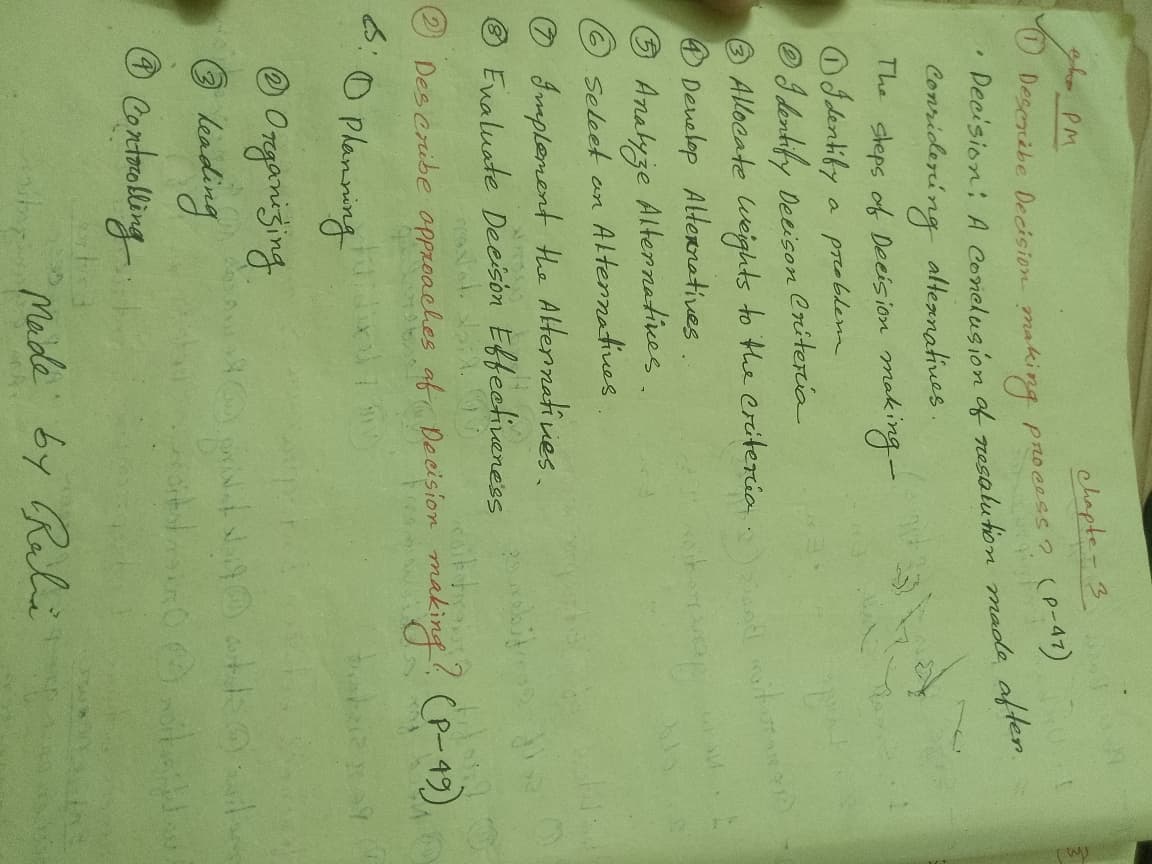 PM
Chapte-3
① Describe Decision making process? (P-47)
• Decision: A conclusion of resolution made after
considering alternatives.
The steps of Decision making-
① Identify a problem
② Identify Decison Criteria
③ Allocate weights to the criteria.
④ Develop Alternatives.
⑤ Analyze Alternatives.
⑥ Select an Alternatives.
⑦ Implement the Alternatives.
⑧ Evaluate Decision Effectiveness
② Describe approaches of Decision making? (P-49)
① Planning
② Organizing
③ Leading
④ Controlling.
Made by